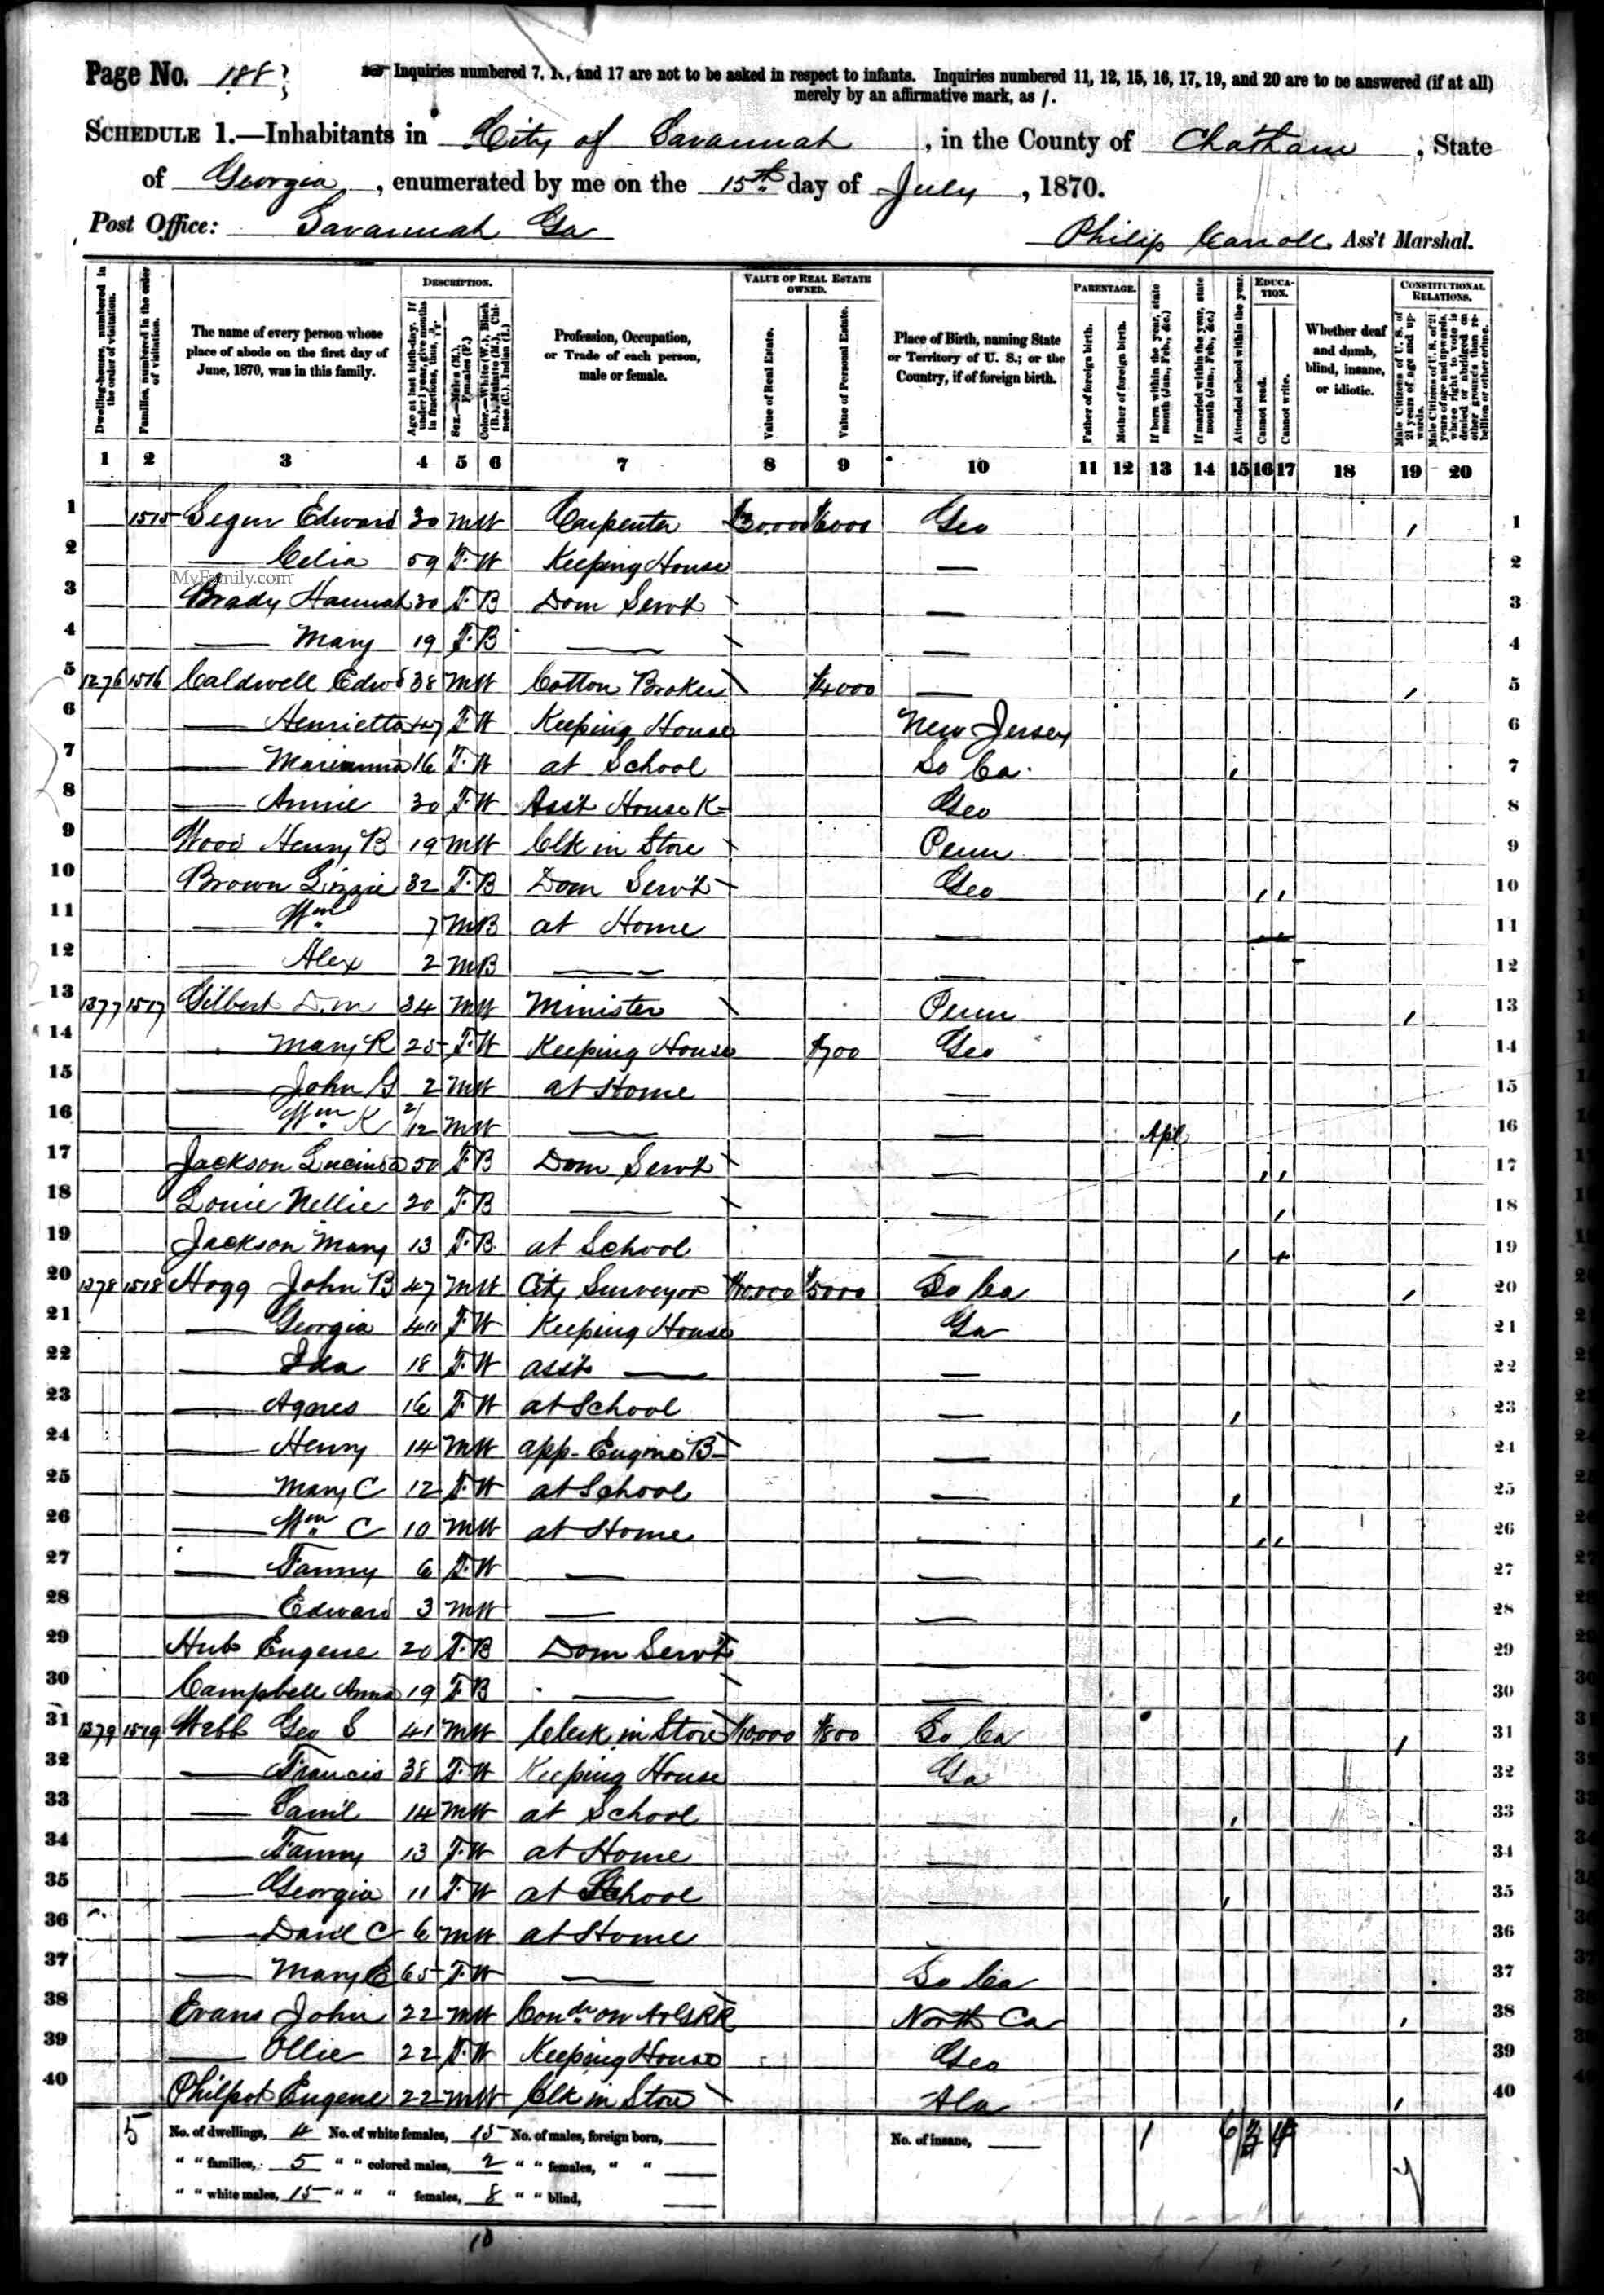 Page No. 188
Inquiries numbered 7, 16, and 17 are not to be asked in respect to infants. Inquiries numbered 11, 12, 15, 16, 17, 19, and 20 are to be answered (if at all)
merely by an affirmative mark, as /.
SCHEDULE 1.—Inhabitants in City of Savannah, in the County of Chatham, State
of Georgia, enumerated by me on the 15th day of July, 1870.
Post Office: Savannah Ga
Philip Carroll, Ass't Marshal.
Dwelling-houses, numbered in the order of visitation.
Families, numbered in the order of visitation.
The name of every person whose place of abode on the first day of June, 1870, was in this family.
DESCRIPTION.
Age at last birth-day. If under 1 year, give months in fractions, thus, 3/12.
Sex.—Males (M.), Females (F.)
Color.—White (W.), Black (B.), Mulatto (M.), Chinese (C.), Indian (I.)
Profession, Occupation, or Trade of each person, male or female.
VALUE OF REAL ESTATE OWNED.
Value of Real Estate.
Value of Personal Estate.
Place of Birth, naming State or Territory of U. S.; or the Country, if of foreign birth.
PARENTAGE.
Father of foreign birth.
Mother of foreign birth.
If born within the year, state month (Jan., Feb., &c.)
If married within the year, state month (Jan., Feb., &c.)
Attended school within the year.
EDUCATION.
Cannot read.
Cannot write.
Whether deaf and dumb, blind, insane, or idiotic.
CONSTITUTIONAL RELATIONS.
Male Citizens of U. S. of 21 years of age and upwards.
Male Citizens of U. S. of 21 years of age and upwards, whose right to vote is denied or abridged on other grounds than rebellion or other crime.
1 2 3 4 5 6 7 8 9 10 11 12 13 14 15 16 17 18 19 20
1 1515 Edward 30 M W Carpenter $6000 Geo / 1
2 — Celia 59 F W Keeping House — 2
MyFamily.com
3 Brady Hannah 30 F B Dom Serv't — 3
4 — Mary 19 F B — — 4
5 1276 1516 Caldwell Edwd 38 M W Cotton Broker $4000 — / 5
6 — Henrietta 47 F W Keeping House New Jersey 6
7 — 16 F W at School So Ca / 7
8 — Annie 30 F W Ass't House K Geo 8
9 Wood Henry B 19 M W Clk in Store Penn 9
10 Brown Lizzie 32 F B Dom Serv't Geo / / 10
11 — Wm 7 M B at Home — 11
12 — Alex 2 M B — — 12
13 1377 1517 Gilbert D. M 34 M W Minister Penn / 13
14 Mary R 25 F W Keeping House $700 Geo 14
15 — John G 2 M W at Home — 15
16 — Wm K 2/12 M W — — Apl 16
17 Jackson Lucinda 50 F B Dom Serv't — / / 17
18 Nellie 20 F B — — / 18
19 Jackson Mary 13 F B at School — / 19
20 1378 1518 Hogg John B 47 M W City Surveyor $10.000 $5000 So Ca / 20
21 — Georgia F W Keeping House Ga 21
22 — Ida 18 F W ass't — — 22
23 — Agnes 16 F W at School — / 23
24 — Henry 14 M W app. Engine B — 24
25 — Mary C 12 F W at School — / 25
26 — Wm C 10 M W at Home — / / 26
27 — Fanny 6 F W — — 27
28 — Edward 3 M W — — 28
29 Eugene 20 F B Dom Serv't — 29
30 Campbell Anna 19 F B — — 30
31 1379 1519 Webb Geo S 41 M W Clerk in Store $10.000 $800 So Ca / 31
32 — Francis 38 F W Keeping House Ga 32
33 — Sam'l 14 M W at School — / 33
34 — Fanny 13 F W at Home — 34
35 — Georgia 11 F W at School — / 35
36 — C 6 M W at Home — 36
37 — Mary E 65 F W — So Ca 37
38 Evans John 22 M W Condr on RR North Ca / 38
39 — Ollie 22 F W Keeping House Geo 39
40 Philpot Eugene 22 M W Clk in Store Ala / 40
5 No. of dwellings, 4 No. of white females, 15 No. of males, foreign born, — No. of insane, — 1 6
" " families, 5 " " colored males, 2 " " females, " " —
" " white males, 15 " " " females, 8 " " blind, —
10